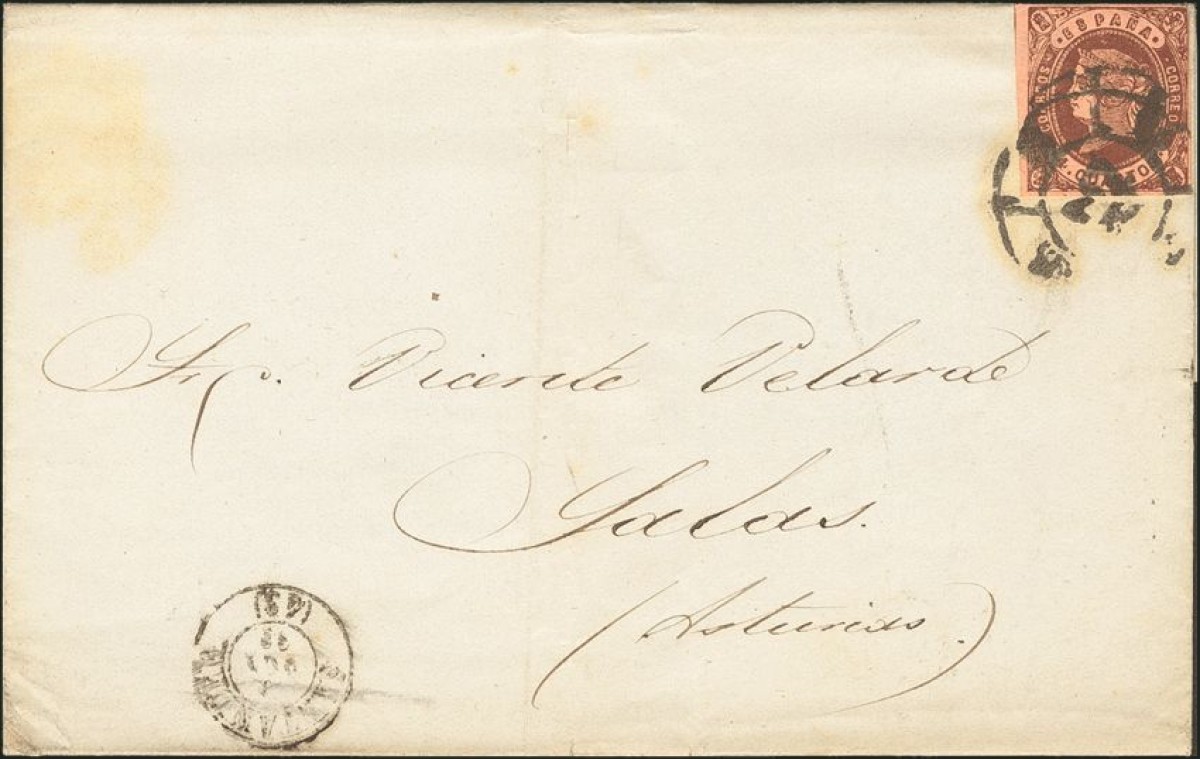 ESPAÑA
CORREOS
CORREOS
CUARTOS
Sr. D. Vicente Velarde
Salas.
(Asturias.)
(42)